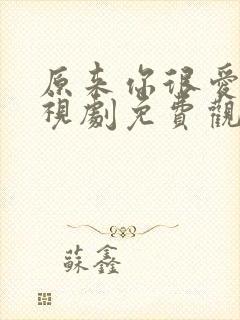 原来你很愛
視劇免費觀
蘇鑫